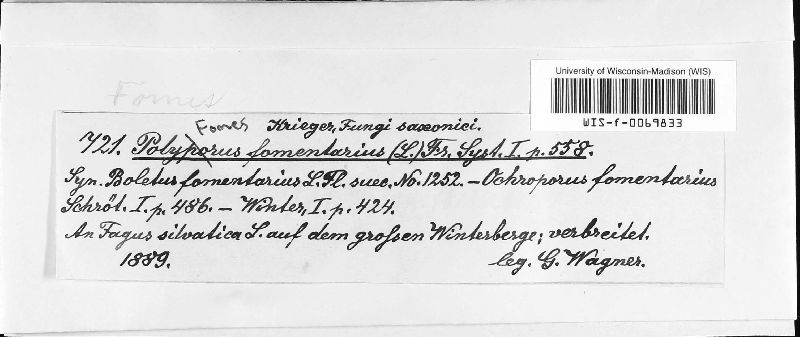 University of Wisconsin-Madison (WIS)
WIS-f-0069833
Fomes
Fomes
Krieger, Fungi saxonici.
721. Polyporus fomentarius (L.) Frs. Syst. I. p. 558.
Syn. Boletus fomentarius L. Fl. suec. No. 1252. – Ochroporus fomentarius
Schröt. I. p. 486. – Winter, I. p. 424.
An Fagus silvatica L. auf dem großen Winterberge; verbreitet.
1889. leg. G. Wagner.